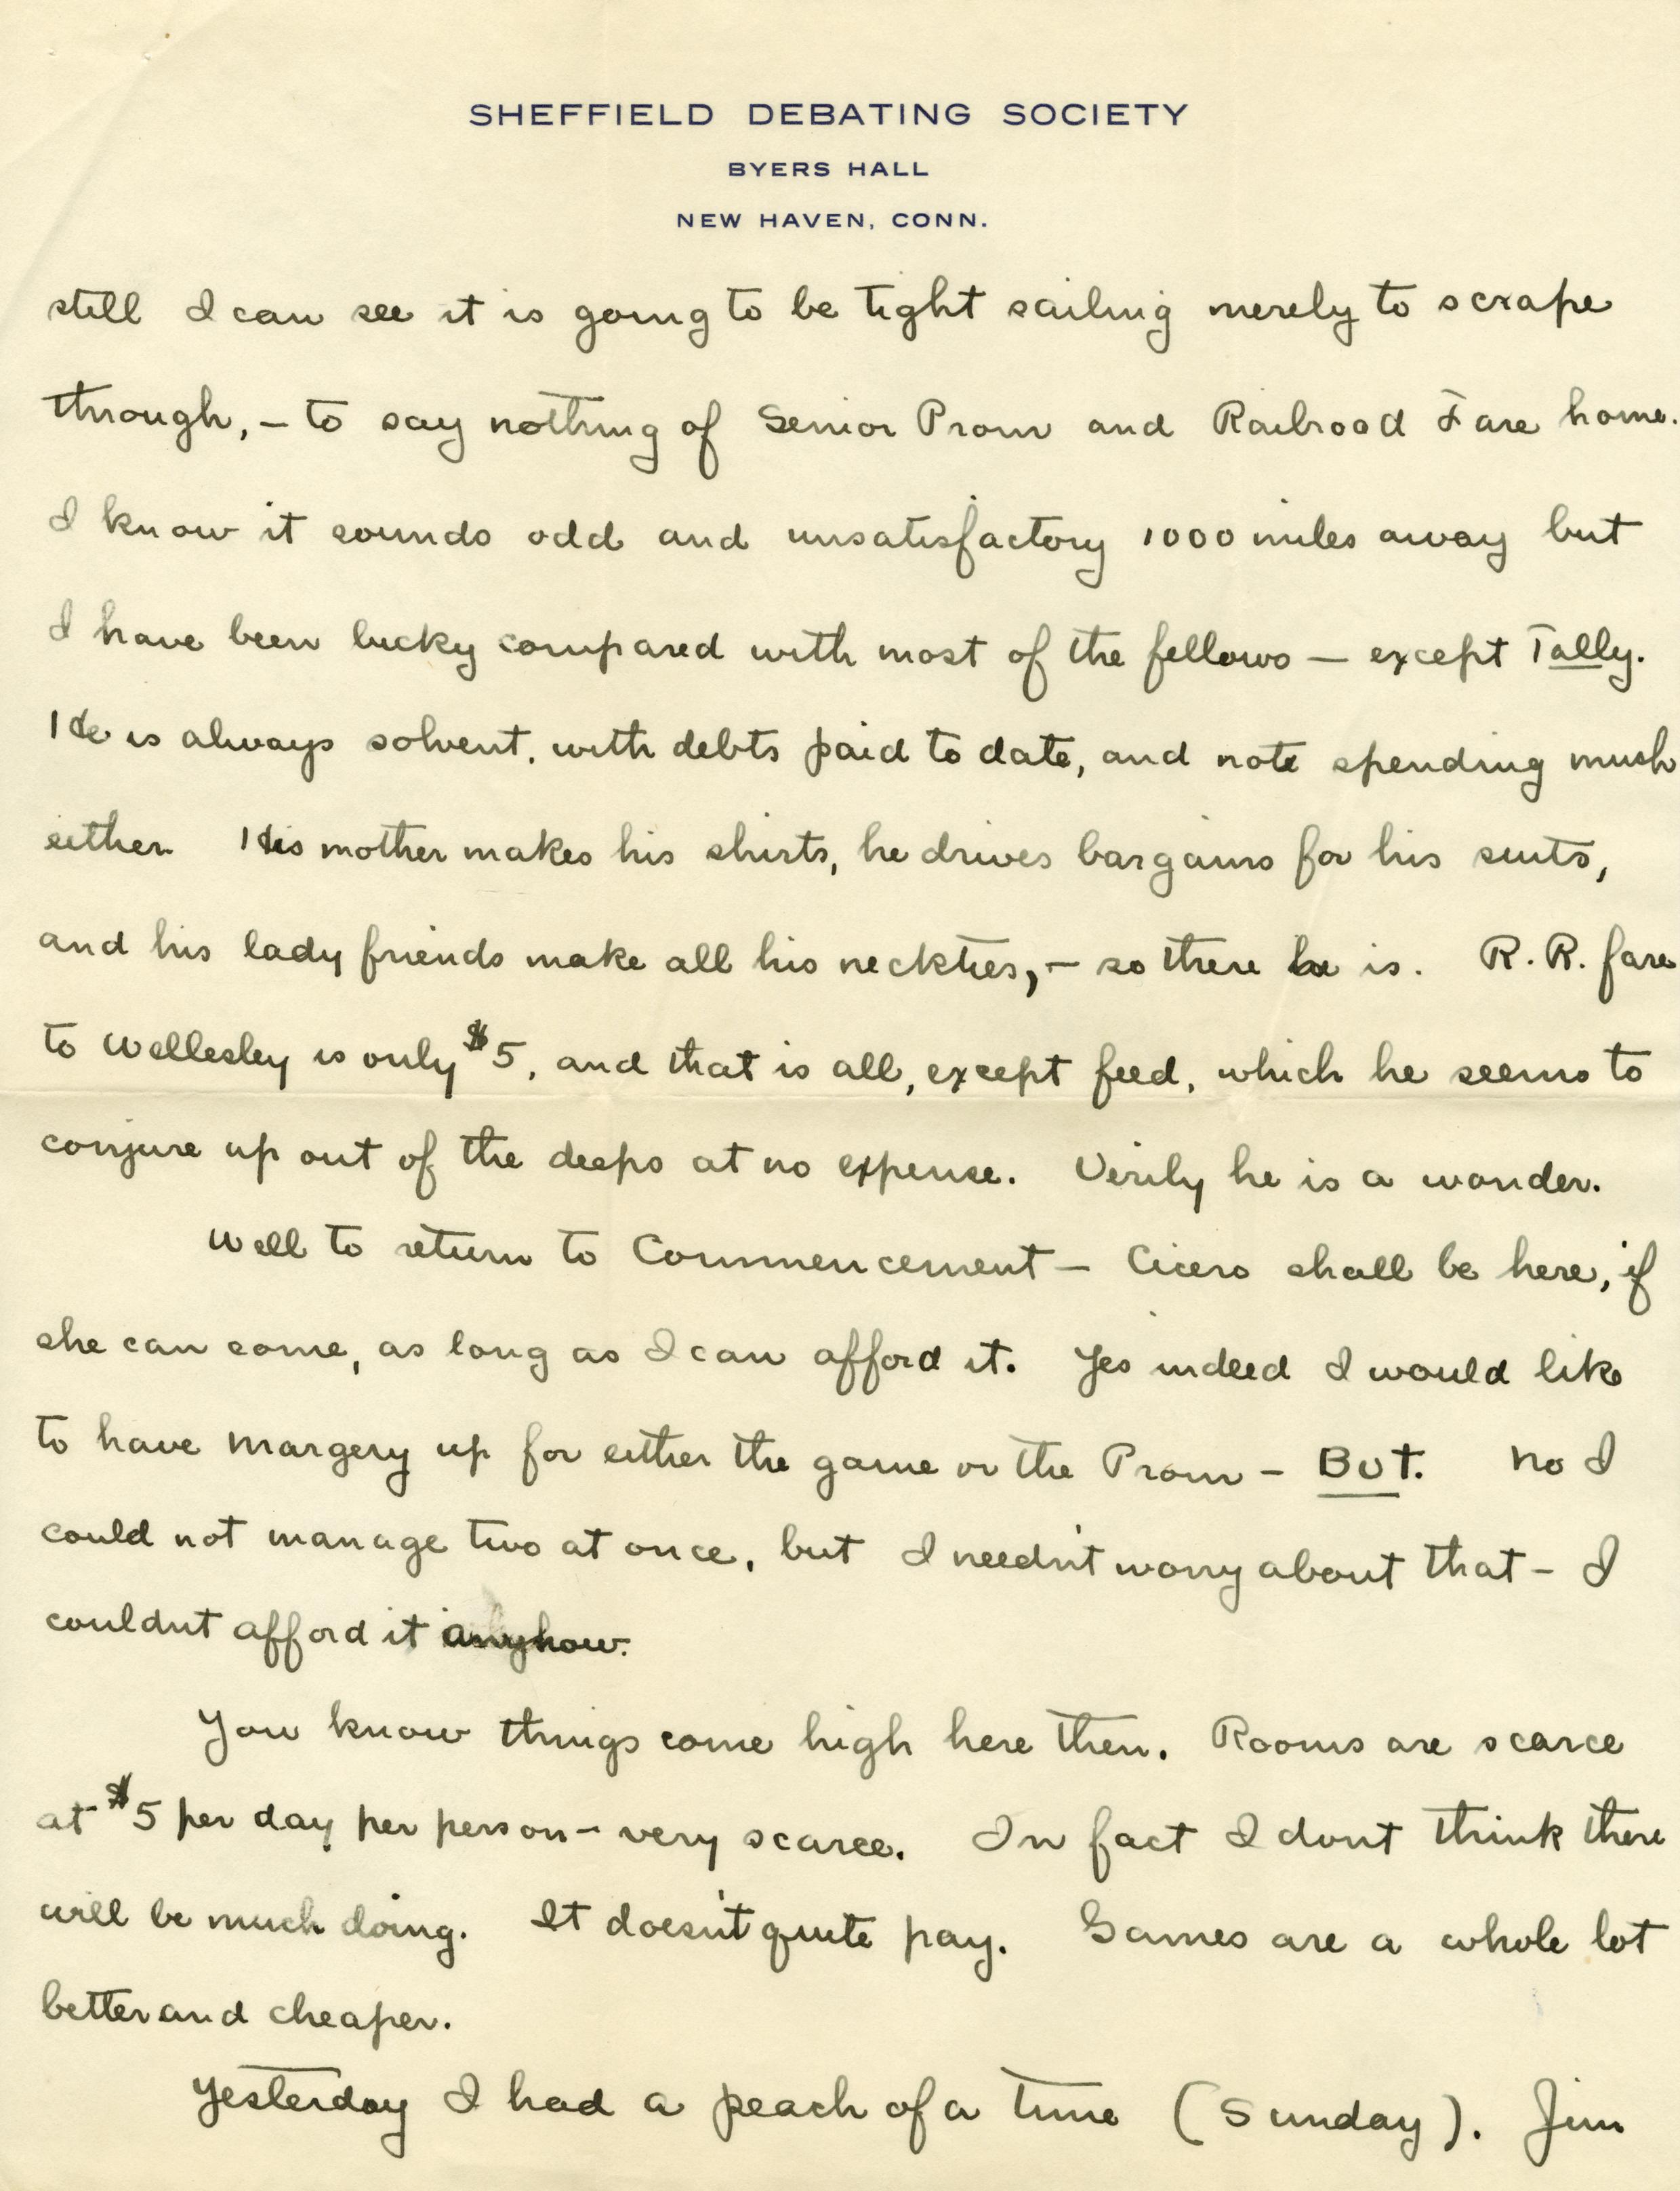 SHEFFIELD DEBATING SOCIETY
BYERS HALL
NEW HAVEN, CONN.
still I can see it is going to be tight sailing merely to scrape
through, – to say nothing of Senior Prom and Railroad Fare home.
I know it sounds odd and unsatisfactory 1000 miles away but
I have been lucky compared with most of the fellows – except Tally.
He is always solvent, with debts paid to date, and note spending much
either. His mother makes his shirts, he drives bargains for his suits,
and his lady friends make all his neckties, – so there he is. R.R. fare
to Wellesley is only $5, and that is all, except feed, which he seems to
conjure up out of the deeps at no expense. Verily he is a wonder.
Well to return to Commencement – Cicero shall be here, if
she can come, as long as I can afford it. Yes indeed I would like
to have Margery up for either the game or the Prom – BUT. No I
could not manage two at once, but I needn't worry about that – I
couldnt afford it anyhow.
You know things come high here then. Rooms are scarce
at $5 per day per person – very scarce. In fact I dont think there
will be much doing. It doesn't quite pay. Games are a whole lot
better and cheaper.
Yesterday I had a peach of a time (Sunday). Jim